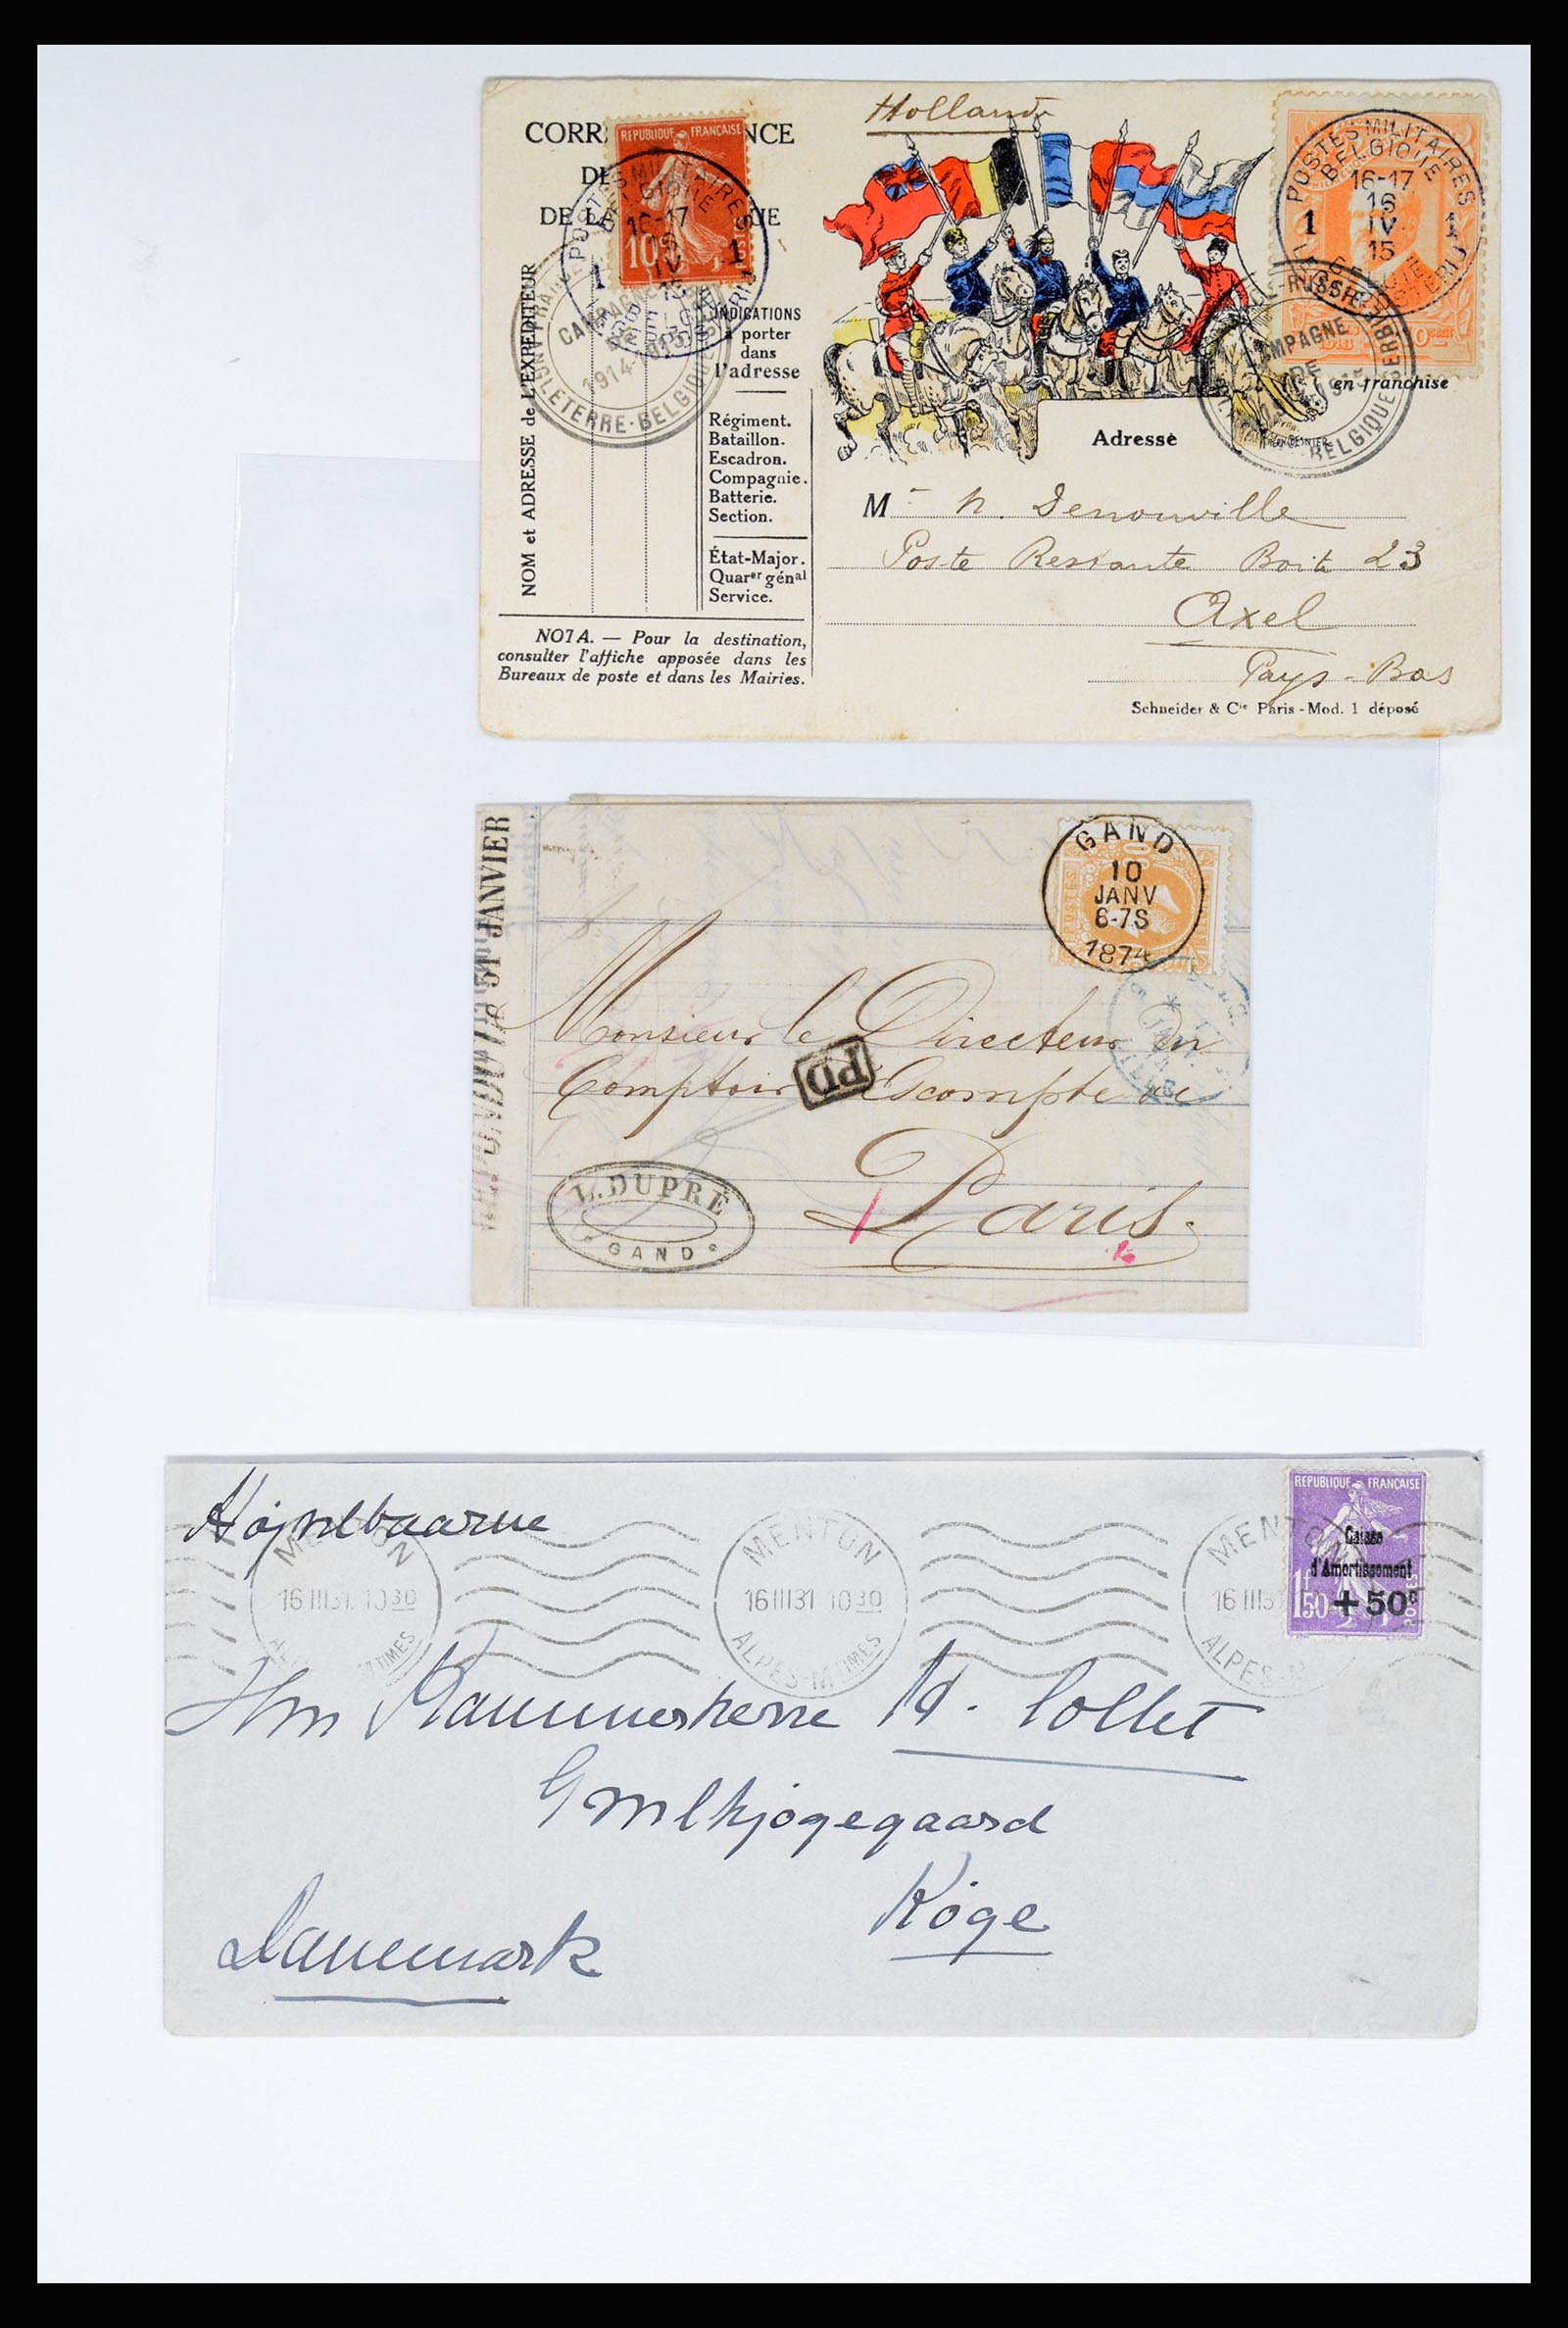 Hollande
CORR NCE
DE
DE L UE
REPUBLIQUE FRANÇAISE
10
POSTES
POSTES MILITAIRES
BELGIQUE
16-17
16
IV
15
1 1
CAMPAGNE
1914-1915
ANGLETERRE-BELGIQUE
POSTES MILITAIRES
BELGIQUE
16-17
16
IV
15
1 1
RUSSIE
CAMPAGNE
DE
BELGIQUE
en franchise
NOM et ADRESSE de L'EXPÉDITEUR
INDICATIONS
à porter
dans
l'adresse
Régiment.
Bataillon.
Escadron.
Compagnie.
Batterie.
Section.
État-Major.
Quarer génal
Service.
NOTA. — Pour la destination,
consulter l'affiche apposée dans les
Bureaux de poste et dans les Mairies.
Adresse
M r n. Denouville
Poste Restante Boite 23
Axel
Pays-Bas
Schneider & Cie Paris - Mod. 1 déposé
31 JANVIER
GAND
10
JANV
6-7S
1874
POSTES
Monsieur le Directeur du
Comptoir d'Escompte de
Paris.
PD
L. DUPRÉ
GAND
REPUBLIQUE FRANÇAISE
Caisse
d'Amortissement
1f50 +50c
POSTES
MENTON
16 III 31 10 30
ALPES-MTIMES
MENTON
16 III 31 10 30
ALPES-MTIMES
MENTON
16 III 3
ALPES-M
Højvelbaarne
Hrn Kammerherre M. Collet
Gmlkjøgegaard
Køge
Danemark